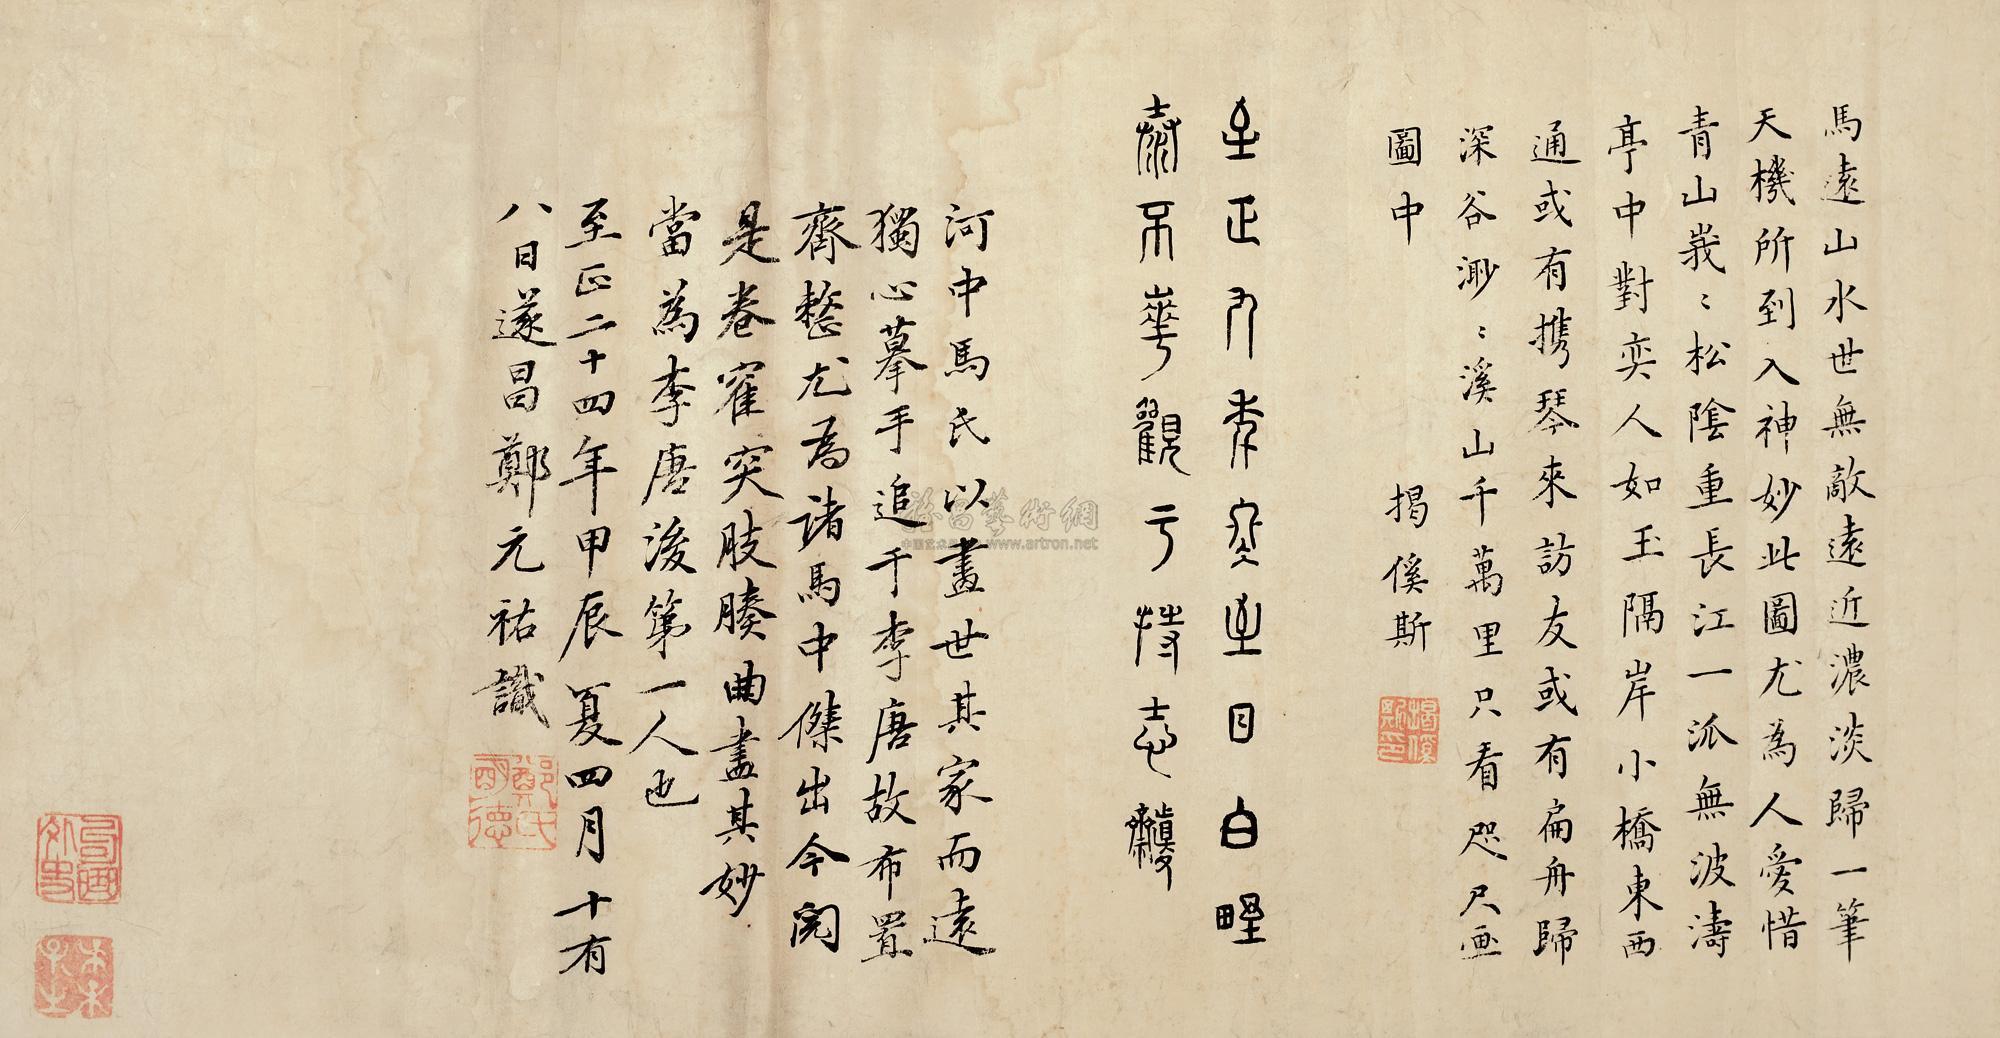 馬遠山水世無敵遠近濃淡歸一筆
天機所到入神妙此圖尤為人愛惜
青山峩〻松陰重長江一派無波濤
亭中對奕人如玉隔岸小橋東西
通或有携琴來訪友或有扁舟歸
深谷渺〻溪山千萬里只看咫尺画
圖中 揭傒斯
揭傒斯印
至正九年冬至日白野
泰不華觀于特志
河中馬氏以畫世其家而遠
獨心摹手追于李唐故布置
齊整尤為諸馬中傑出今閱
是卷突肢腠曲盡其妙
當為李唐後第一人也
至正二十四年甲辰夏四月十有
八日遂昌鄭元祐識
鄭氏明德
雅昌藝術網
www.artron.net